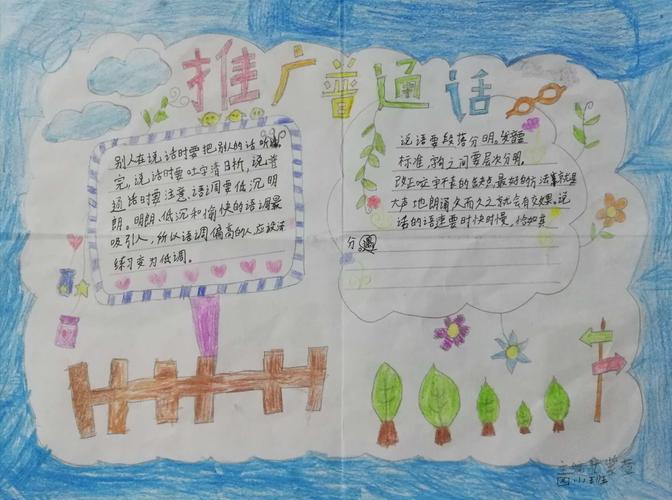 推广普通话
别人在说话时要把别人的话听
完。说话时要吐字清日析，说普
通话时要注意、语调要低沉明
朗。明朗、低沉和愉快的语调最
吸引人，所以语调偏高的人应设法
练习变为低调。
说话要段落分明。发音
标准，字句之间要层次分明。
改正咬字不准的缺点，最好的方法就是
大声地朗诵久而久之就会有效果。说
话的语速要时快时慢，恰如其
分
四小班